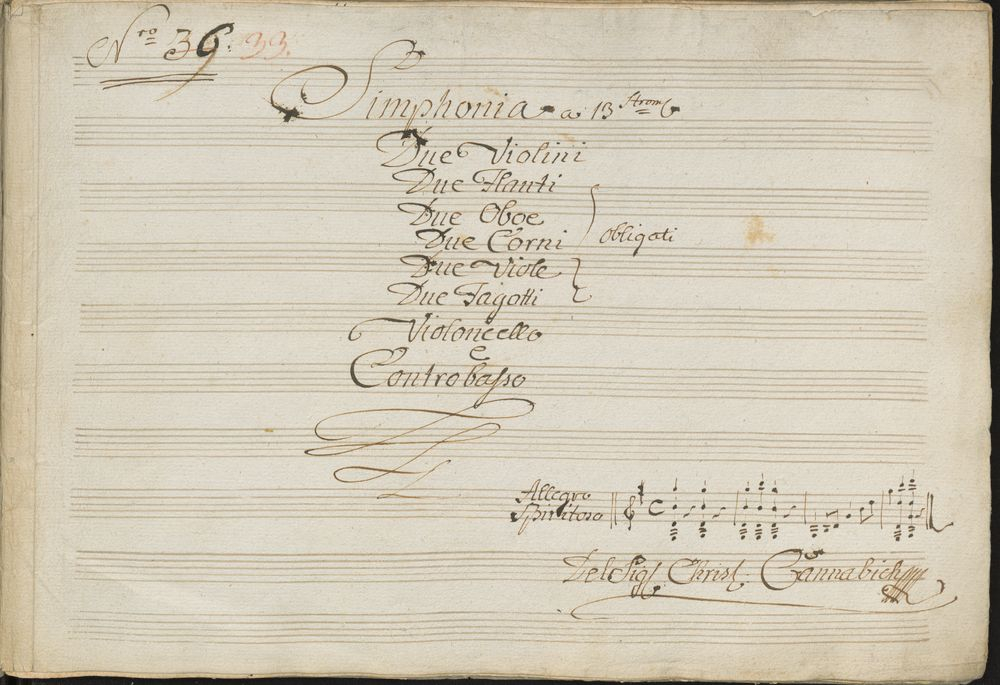 Nro 36. 33.
Simphonia a 13 Strom
Due Violini
Due Flauti
Due Oboe
Due Corni obligati
Due Viole
Due Fagotti
Violoncello
e
Controbasso
Allegro
Spiritoso
Del Sigl Christ. Cannabich